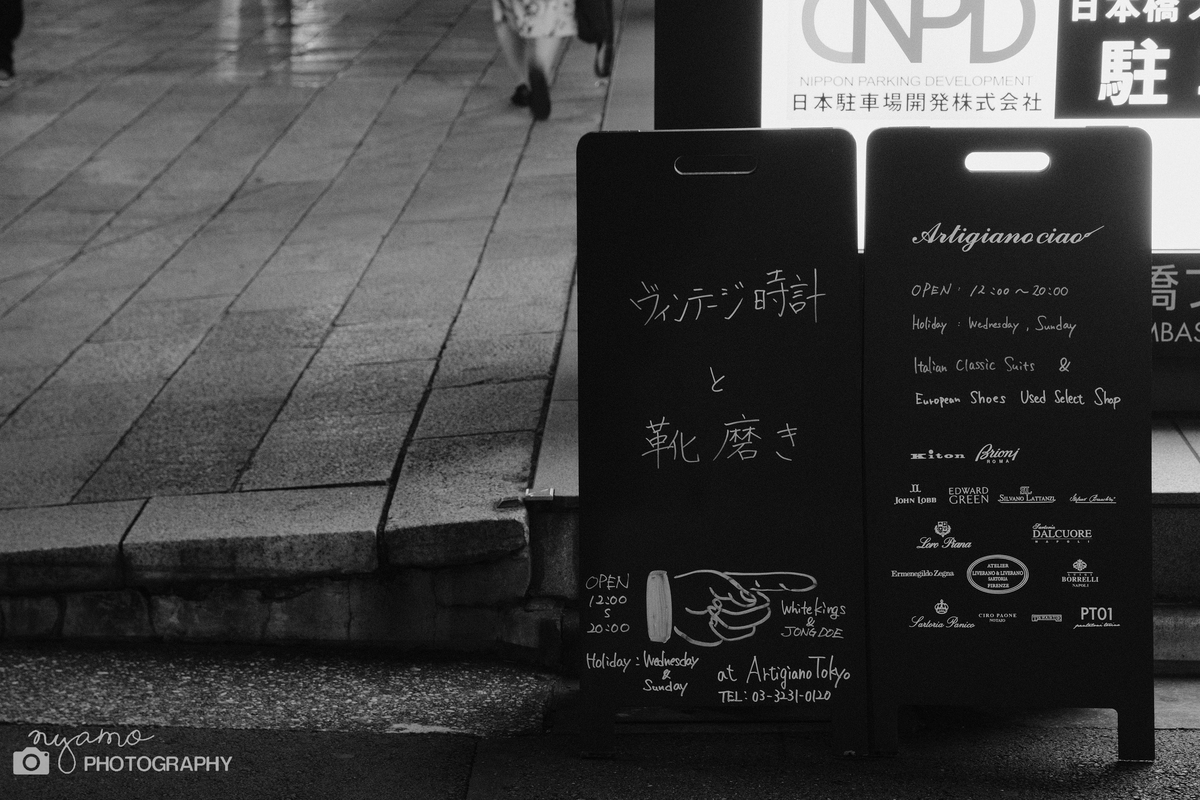 NPD
NIPPON PARKING DEVELOPMENT
日本駐車場開発株式会社
日本橋
駐
橋
MBAS
ヴィンテージ時計
と
靴磨き
OPEN
12:00
S
20:00
White Kings
&
JONG DOE
Holiday : Wednesday
&
Sunday
at Artigiano Tokyo
TEL: 03-3231-0120
Artigiano ciao
OPEN : 12:00 ~ 20:00
Holiday : Wednesday, Sunday
Italian Classic Suits &
European Shoes Used Select Shop
Kiton Brioni
ROMA
JOHN LOBB EDWARD GREEN SILVANO LATTANZI
Loro Piana Sartoria DALCUORE NAPOLI
Ermenegildo Zegna ATELIER LIVERANO & LIVERANO SARTORIA FIRENZE LUIGI BORRELLI NAPOLI
Sartoria Panico CIRO PAONE PT01
nyamo
PHOTOGRAPHY